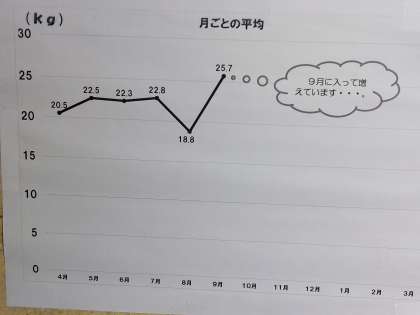 (kg)
月ごとの平均
30
25
20
15
10
5
0
20.5
22.5
22.3
22.8
18.8
25.7
9月に入って増
えています・・・。
4月
5月
6月
7月
8月
9月
10月
11月
12月
1月
2月
3月